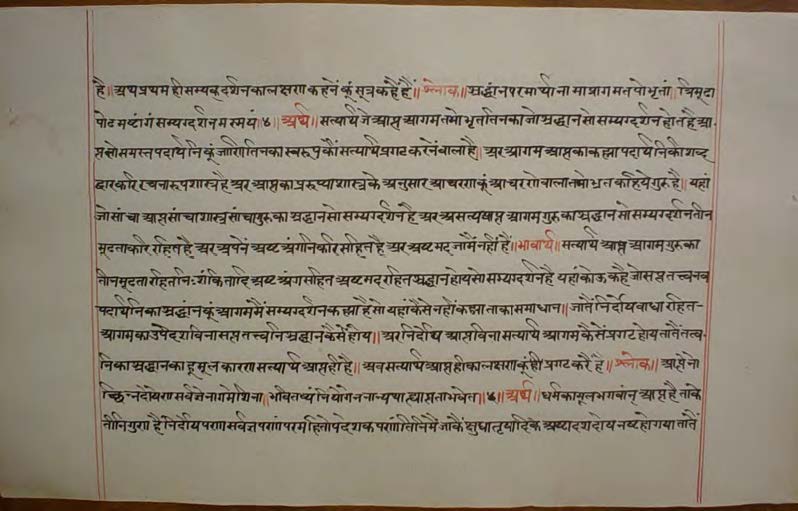 है॥ अथ प्रथम ही सम्यक्दर्शन का लक्षण कहनें कूं सूत्र कहैं हैं॥ श्लोक॥ श्रद्धानं परमार्थानामाप्तागमतपोभृतां॥ त्रिमूढा
पोढमष्टांगं सम्यग्दर्शनमस्मयं॥४॥ अर्थ॥ सत्यार्थ जे आप्त आगम तपोभृत तिनका जो श्रद्धान सो सम्यग्दर्शन होत है आ
प्त सो समस्त पदार्थनिकूं जाणि तिनका स्वरूपकौं सत्यार्थ प्रगट करनें वाला है॥ अर आगम आप्त का कह्या पदार्थनिकी शब्द
द्वार करि रचनारूप शास्त्र है अर आप्त का प्ररूप्या शास्त्र के अनुसार आचरण कूं आचरणे वाला तपोभृत कहिये गुरु है॥ यहां
जो सांचा आप्त सांचा शास्त्र सांचा गुरु का श्रद्धान सो सम्यग्दर्शन है अर असत्य आप्त आगम गुरु का श्रद्धान सो सम्यग्दर्शन तीन
मूढता करि रहित है अर अपनें अष्ट अंगनिकरि सहित है अर अष्ट मद जामैं नहीं हैं॥ भावार्थ॥ सत्यार्थ आप्त आगम गुरु का
तीन मूढता रहित निःशंकितादि अष्ट अंग सहित अष्ट मद रहित श्रद्धान होय सो सम्यग्दर्शन है यहां कोऊ कहै जो सप्त तत्त्व नव
पदार्थनिका श्रद्धान कूं आगम मैं सम्यग्दर्शन कह्या है सो यहां कैसे नहीं कह्या ताका समाधान॥ जातैं निर्दोष बाधा रहित
आगम का उपदेश विना सप्त तत्त्वनि श्रद्धान कैसे होय॥ अर निर्दोष आप्त विना सत्यार्थ आगम कैसें प्रगट होय तातैं तत्त्व
निका श्रद्धान का हू मूल कारण सत्यार्थ आप्त ही है॥ अब सत्यार्थ आप्त ही का लक्षण कूं ही प्रगट करै हैं॥ श्लोक॥ आप्तेनो
च्छिन्नदोषेण सर्वज्ञेनागमेशिना॥ भवितव्यं नियोगेन नान्यथा ह्याप्तता भवेत्॥५॥ अर्थ॥ धर्म का मूल भगवान् आप्त है ताके
तीनि गुण है निर्दोषपणा सर्वज्ञपणां परमहितोपदेशकपणां तिनिमैं जाकैं क्षुधातृषादिक अष्टादश दोष नष्ट हो गया तातैं